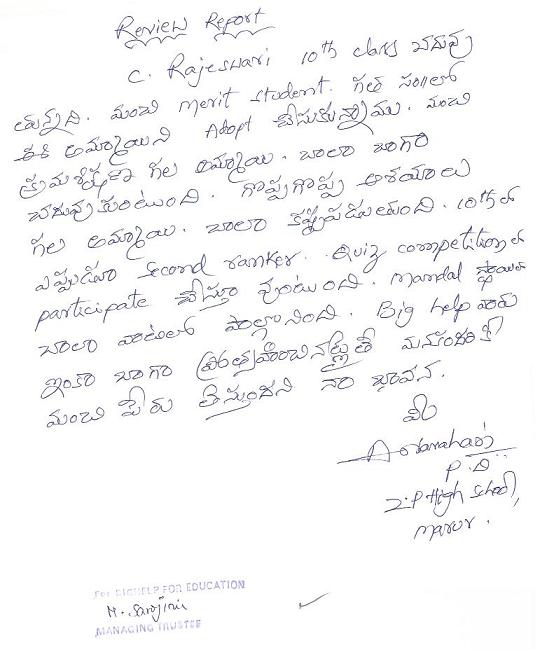 Review Report
C. Rajeswari 10th class చదువు
తున్నది. మంచి merit student. గత సం॥లో
ఈ అమ్మాయిని Adopt చేసుకున్నాము. మంచి
క్రమశిక్షణ గల అమ్మాయి. చాలా బాగా
చదువుకుంటుంది. గొప్పగొప్ప ఆశయాలు
గల అమ్మాయి. చాలా కష్టపడుతుంది. 10thలో
ఎప్పుడూ Second ranker. Quiz competitionలో
participate చేస్తూ వుంటుంది. mandal స్థాయిలో
చాలా వాటిలో పాల్గొనింది. Big help వారు
ఇంకా బాగా ప్రోత్సహించినట్లైతే మనందరికి
మంచి పేరు తెస్తుందని నా భావన.
P.D.
Z.P High School,
Marur.
For BIGHELP FOR EDUCATION
M. Sarojini
MANAGING TRUSTEE